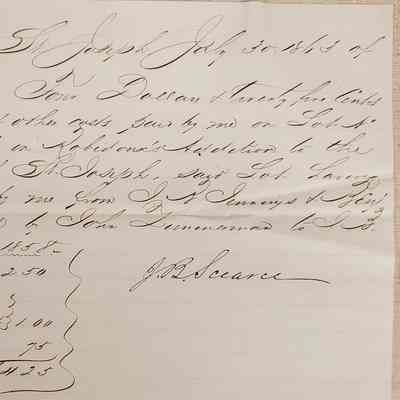 St Joseph July 30 1863 of
Four Dollars & twenty five Cents
other costs paid by me on Lot N
in Robidoux's Addition to the
St Joseph, said Lot having
by me from & Benj
by John to
1858
2 50
1.00
75
4.25
J. B. Scearce